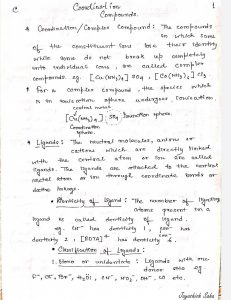 C
Coordination
Compounds.
1
* Coordination/Complex Compound: The compounds
in which some
of the constituent ions lose their identity
while some do not break up completely
into individual ions, are called complex
compounds. eg. [Cu(NH3)4] SO4, [Co(NH3)6] Cl3
* For a complex compound, the species which
is in ionisation sphere undergoes ionisation.
central metal
[Cu(NH3)4] SO4 ionisation sphere.
Coordination
sphere.
* Ligands: The neutral molecules, anions or
cations which are directly linked
with the central atom or ion are called
ligands. The ligands are attached to the central
metal atom or ion through coordinate bonds or
dative linkage.
* Denticity of Ligand: The number of ligating
atoms present in a
ligand is called denticity of ligand.
eg. Cl- has denticity 1, has
denticity 2, [EDTA] has denticity 6.
* Classification of Ligands:
1. Mono or unidentate: Ligands with one
donor site eg.
F-, Cl-, Br-, H2O, CN-, NO2-, OH-, CO etc.
Jayashish Saha